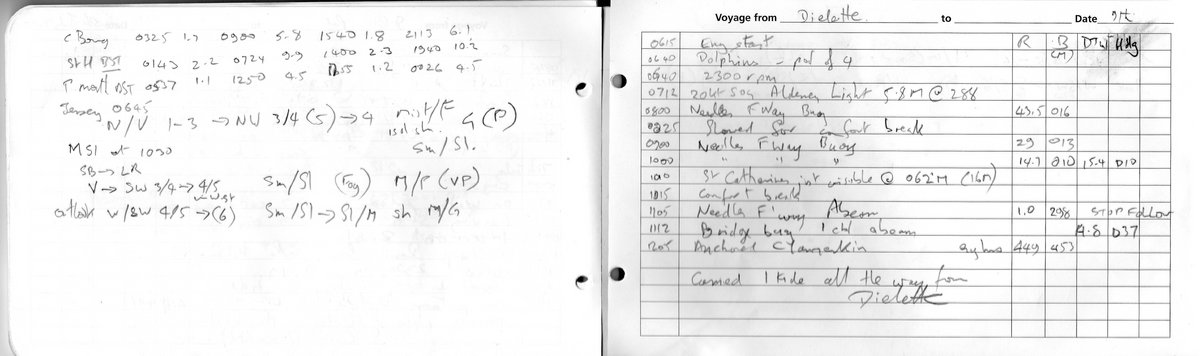 C Bourg 0325 1.7 0900 5.8 1540 1.8 2113 6.1
St H BST 0143 2.2 0724 9.9 1400 2.3 1940 10.2
P mouth BST 0537 1.1 1250 4.5 1755 1.2 0026 4.5
Jersey 0645
N/V 1-3 → NW 3/4 (5) → 4 mist/F G (P)
isol sh.
Sm/Sl.
MSI at 1030
SB → LR
V → SW 3/4 → 4/5 Sm/Sl (Fog) M/P (VP)
outlook W/SW 4/5 → (6) Sm/Sl → Sl/M sh M/G
Voyage from Dielette. to Date 9th
R B (M) DTW Hdg
0615 Eng start
0640 Dolphins - pod of 4
0640 2300 rpm
0712 20kt SOG Alderney Light 5.8M @ 288
0800 Needles F Way Buoy 43.5 016
0825 Slowed for comfort break
0900 Needles F Way Buoy 29 013
1000 " " " 14.7 010 15.4 010
St Catherines pt visible @ 062°M (16M)
1015 Comfort break
1105 Needles F'way Abeam 1.0 298 STOP Follow
1112 Bridge buoy 1 cbl abeam 4.8 037
1205 Anchored Clamerkin 449 453
Carried 1 tide all the way from
Dielette